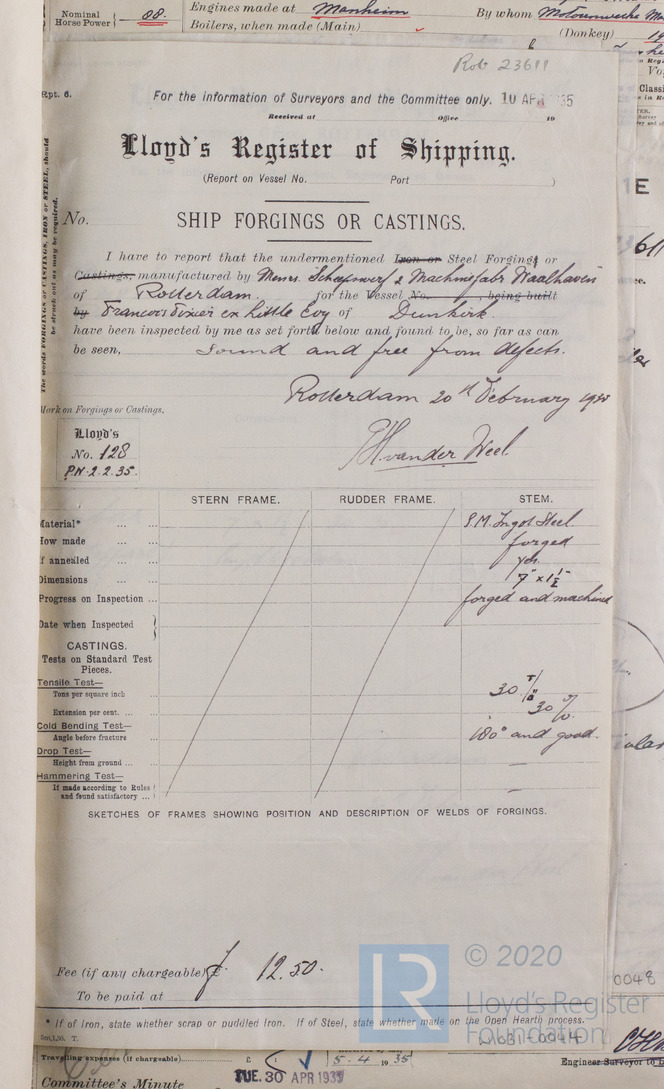 Nominal Horse Power 88. Engines made at Manheim By whom Motorenwerke
Boilers, when made (Main) (Donkey)
Rob 23611
Rpt. 6.
For the information of Surveyors and the Committee only. 10 APR 35
Received at Office 19
Lloyd's Register of Shipping.
(Report on Vessel No. Port )
The words FORGINGS or CASTINGS, IRON or STEEL, should be struck out as may be required.
No. SHIP FORGINGS OR CASTINGS.
I have to report that the undermentioned Iron or Steel Forgings or
Castings, manufactured by Messrs. Scheepswerf & Machinefabr Waalhaven
of Rotterdam for the Vessel No. , being built
by Francois Tixier ex Little Coy of Dunkirk.
have been inspected by me as set forth below and found to be, so far as can
be seen, sound and free from defects.
Rotterdam 20th February 1935
Mark on Forgings or Castings.
vander Weel
Lloyd's
No. 128
P.N. 2.2.35.
STERN FRAME. RUDDER FRAME. STEM.
Material* ... ... S.M. Ingot Steel.
How made ... ... forged
If annealed ... ... yes.
Dimensions ... ... 7" x 1 1/2"
Progress on Inspection ... forged and machined
Date when Inspected
CASTINGS.
Tests on Standard Test
Pieces.
Tensile Test—
Tons per square inch ... 30 T/□"
Extension per cent. ... ... 30 %
Cold Bending Test—
Angle before fracture ... 180° and good.
Drop Test—
Height from ground ... ... —
Hammering Test—
If made according to Rules
and found satisfactory ... —
SKETCHES OF FRAMES SHOWING POSITION AND DESCRIPTION OF WELDS OF FORGINGS.
Fee (if any chargeable) f. 12.50.
To be paid at
© 2020
Lloyd's Register
Foundation
0048
W1631-0044
* If of Iron, state whether scrap or puddled Iron. If of Steel, state whether made on the Open Hearth process.
Travelling expenses (if chargeable) £ : : 5.4.1935
Engineer Surveyor to
TUE. 30 APR 1935
Committee's Minute